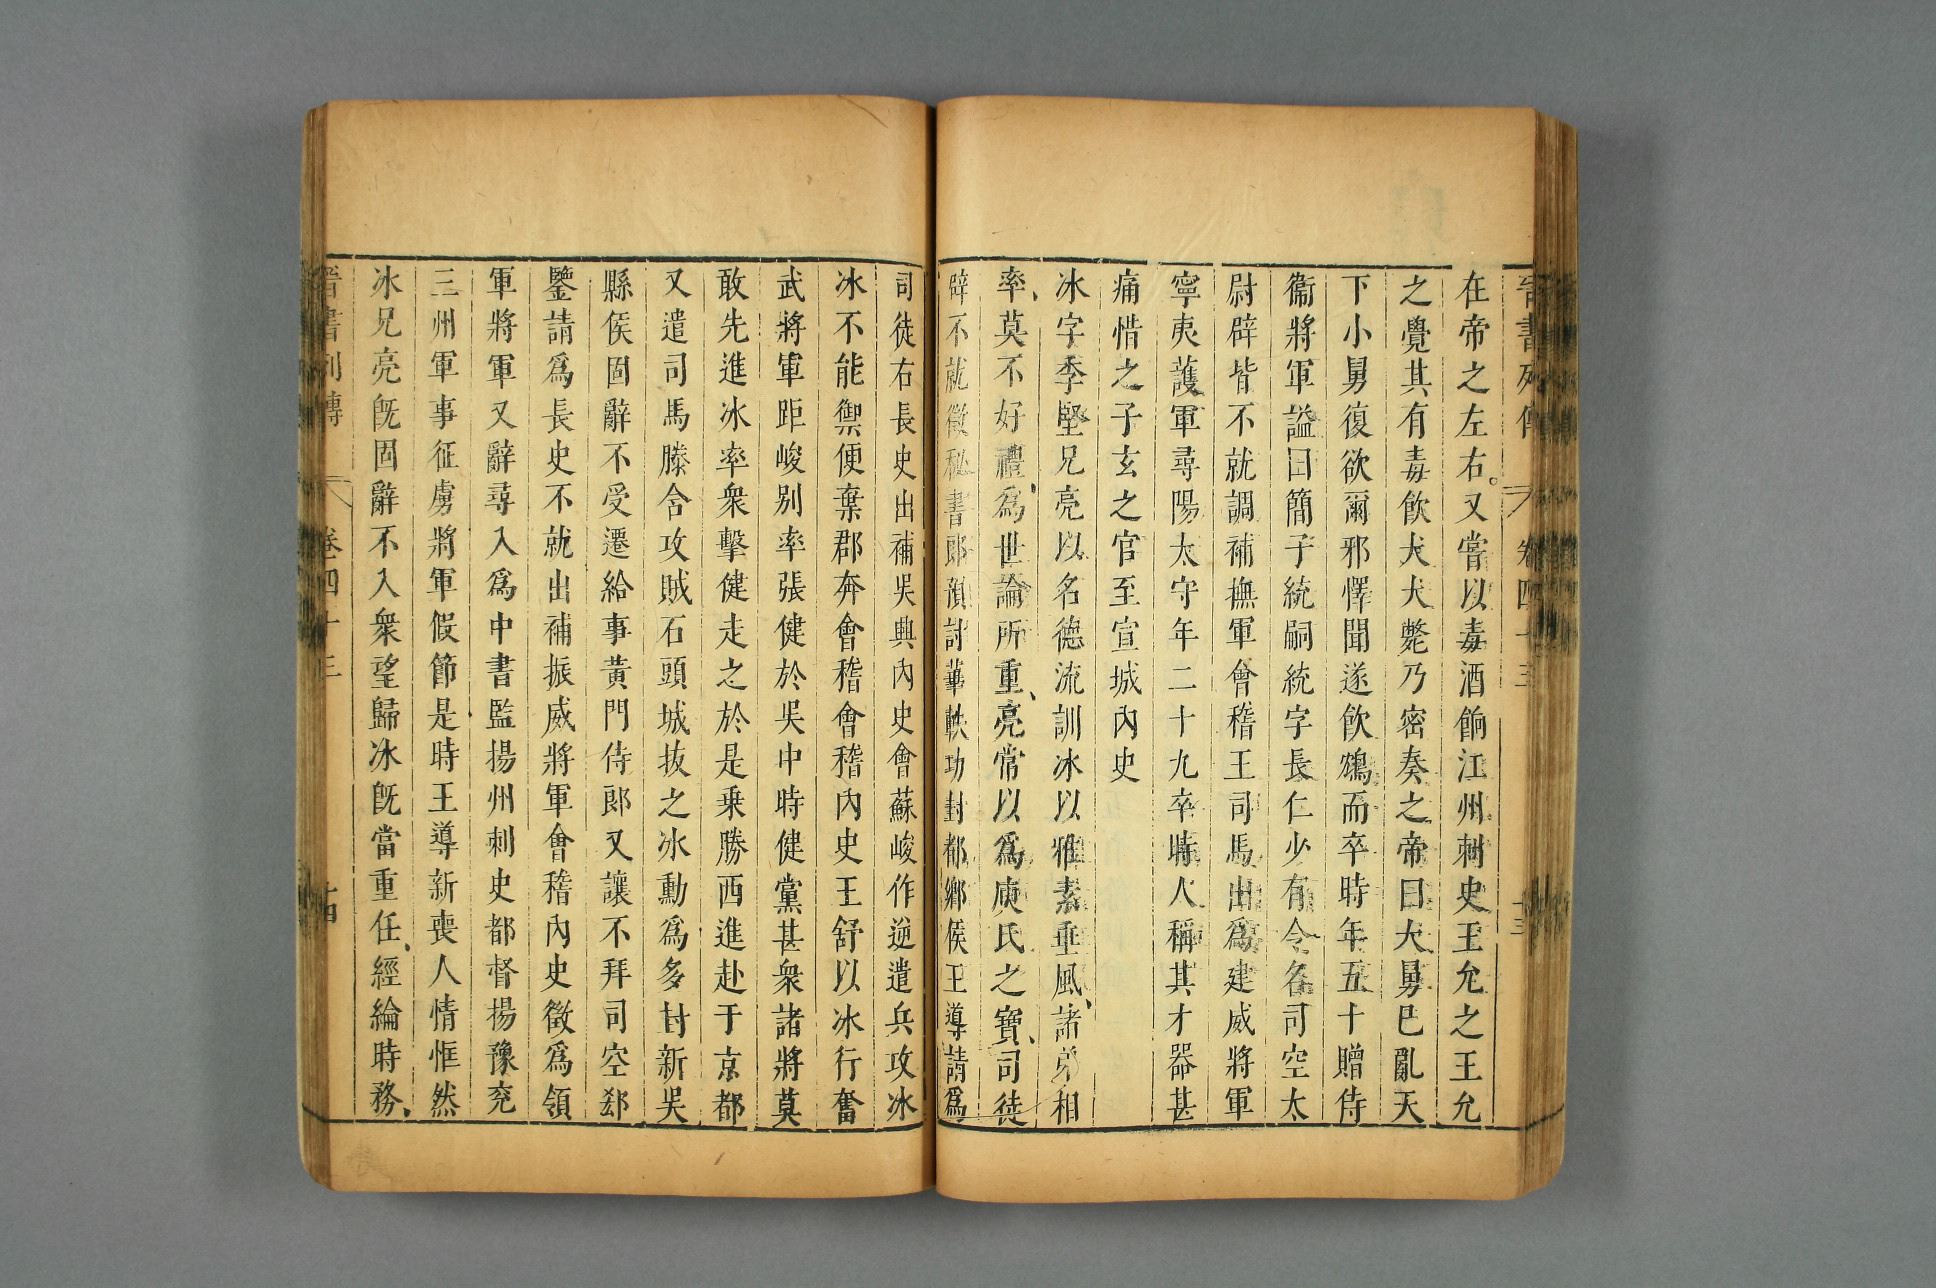 晉書列傳 卷四十三 十三
在帝之左右又嘗以毒酒餉江州刺史王允之王允
之覺其有毒飲犬犬斃乃密奏之帝曰大舅已亂天
下小舅復欲爾邪懌聞遂飲鴆而卒時年五十贈侍
衞將軍謚曰簡子統嗣統字長仁少有令名司空太
尉辟皆不就調補撫軍會稽王司馬出爲建威將軍
寧夷護軍尋陽太守年二十九卒時人稱其才器甚
痛惜之子玄之官至宣城內史
冰字季堅兄亮以名德流訓冰以雅素垂風諸弟相
率莫不好禮爲世論所重亮常以爲庾氏之寶司徒
辟不就徵秘書郎預討華軼功封都鄉侯王導請爲
司徒右長史出補吳興內史會蘇峻作逆遣兵攻冰
冰不能禦便棄郡奔會稽會稽內史王舒以冰行奮
武將軍距峻別率張健於吳中時健黨甚衆諸將莫
敢先進冰率衆擊健走之於是乗勝西進赴于京都
又遣司馬滕含攻賊石頭城拔之冰勳爲多封新吳
縣侯固辭不受遷給事黃門侍郎又讓不拜司空郄
鑒請爲長史不就出補振威將軍會稽內史徵爲領
軍將軍又辭尋入爲中書監揚州刺史都督揚豫兖
三州軍事征虜將軍假節是時王導新喪人情恇然
冰兄亮旣固辭不入衆望歸冰旣當重任經綸時務
晉書列傳 卷四十三 十四